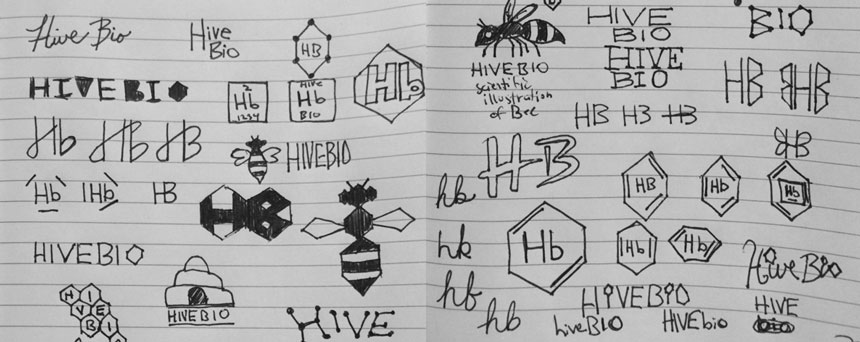 Hive Bio
Hive
Bio
HB
HIVEBIO
2
Hb
1234
HIVE
Hb
BIO
Hb
Hb HB HB
HIVEBIO
Hb Hb HB
HB
HIVEBIO
HIVEBIO
HI
VE
BI
HIVE
HIVEBIO
scientific
illustration
of Bee
HIVE
BIO
HIVE
BIO
BIO
HB HB
HB H3 HB
HB
HB
hb
HB Hb Hb
Hb
hb
Hb Hb
hb
hb
HiVEBiO
hiveBIO
HIVEbio
HiveBio
HIVE